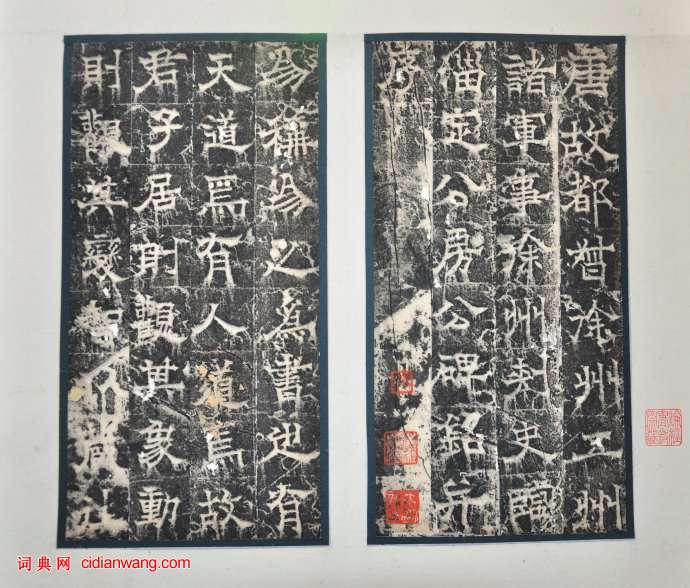 唐故都督徐州五州
諸軍事徐州刺史臨
淄定公房公碑銘并
序
易稱易之為書也有
天道焉有人道焉故
君子居則觀其象動
則觀其變
词典网 cidianwang.com